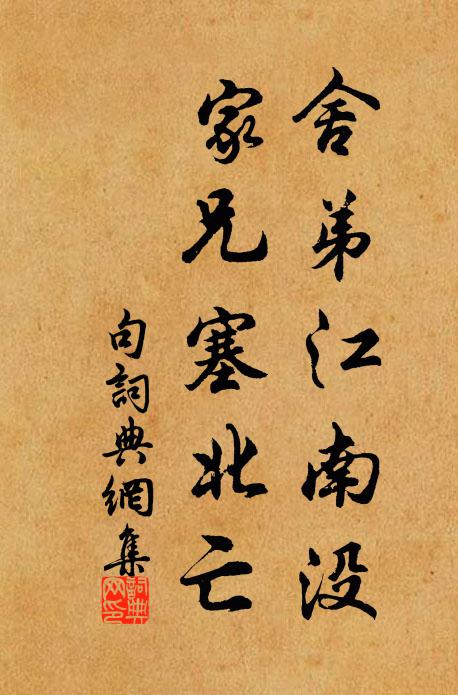 舍弟江南没
家兄塞北亡
句詞典網集